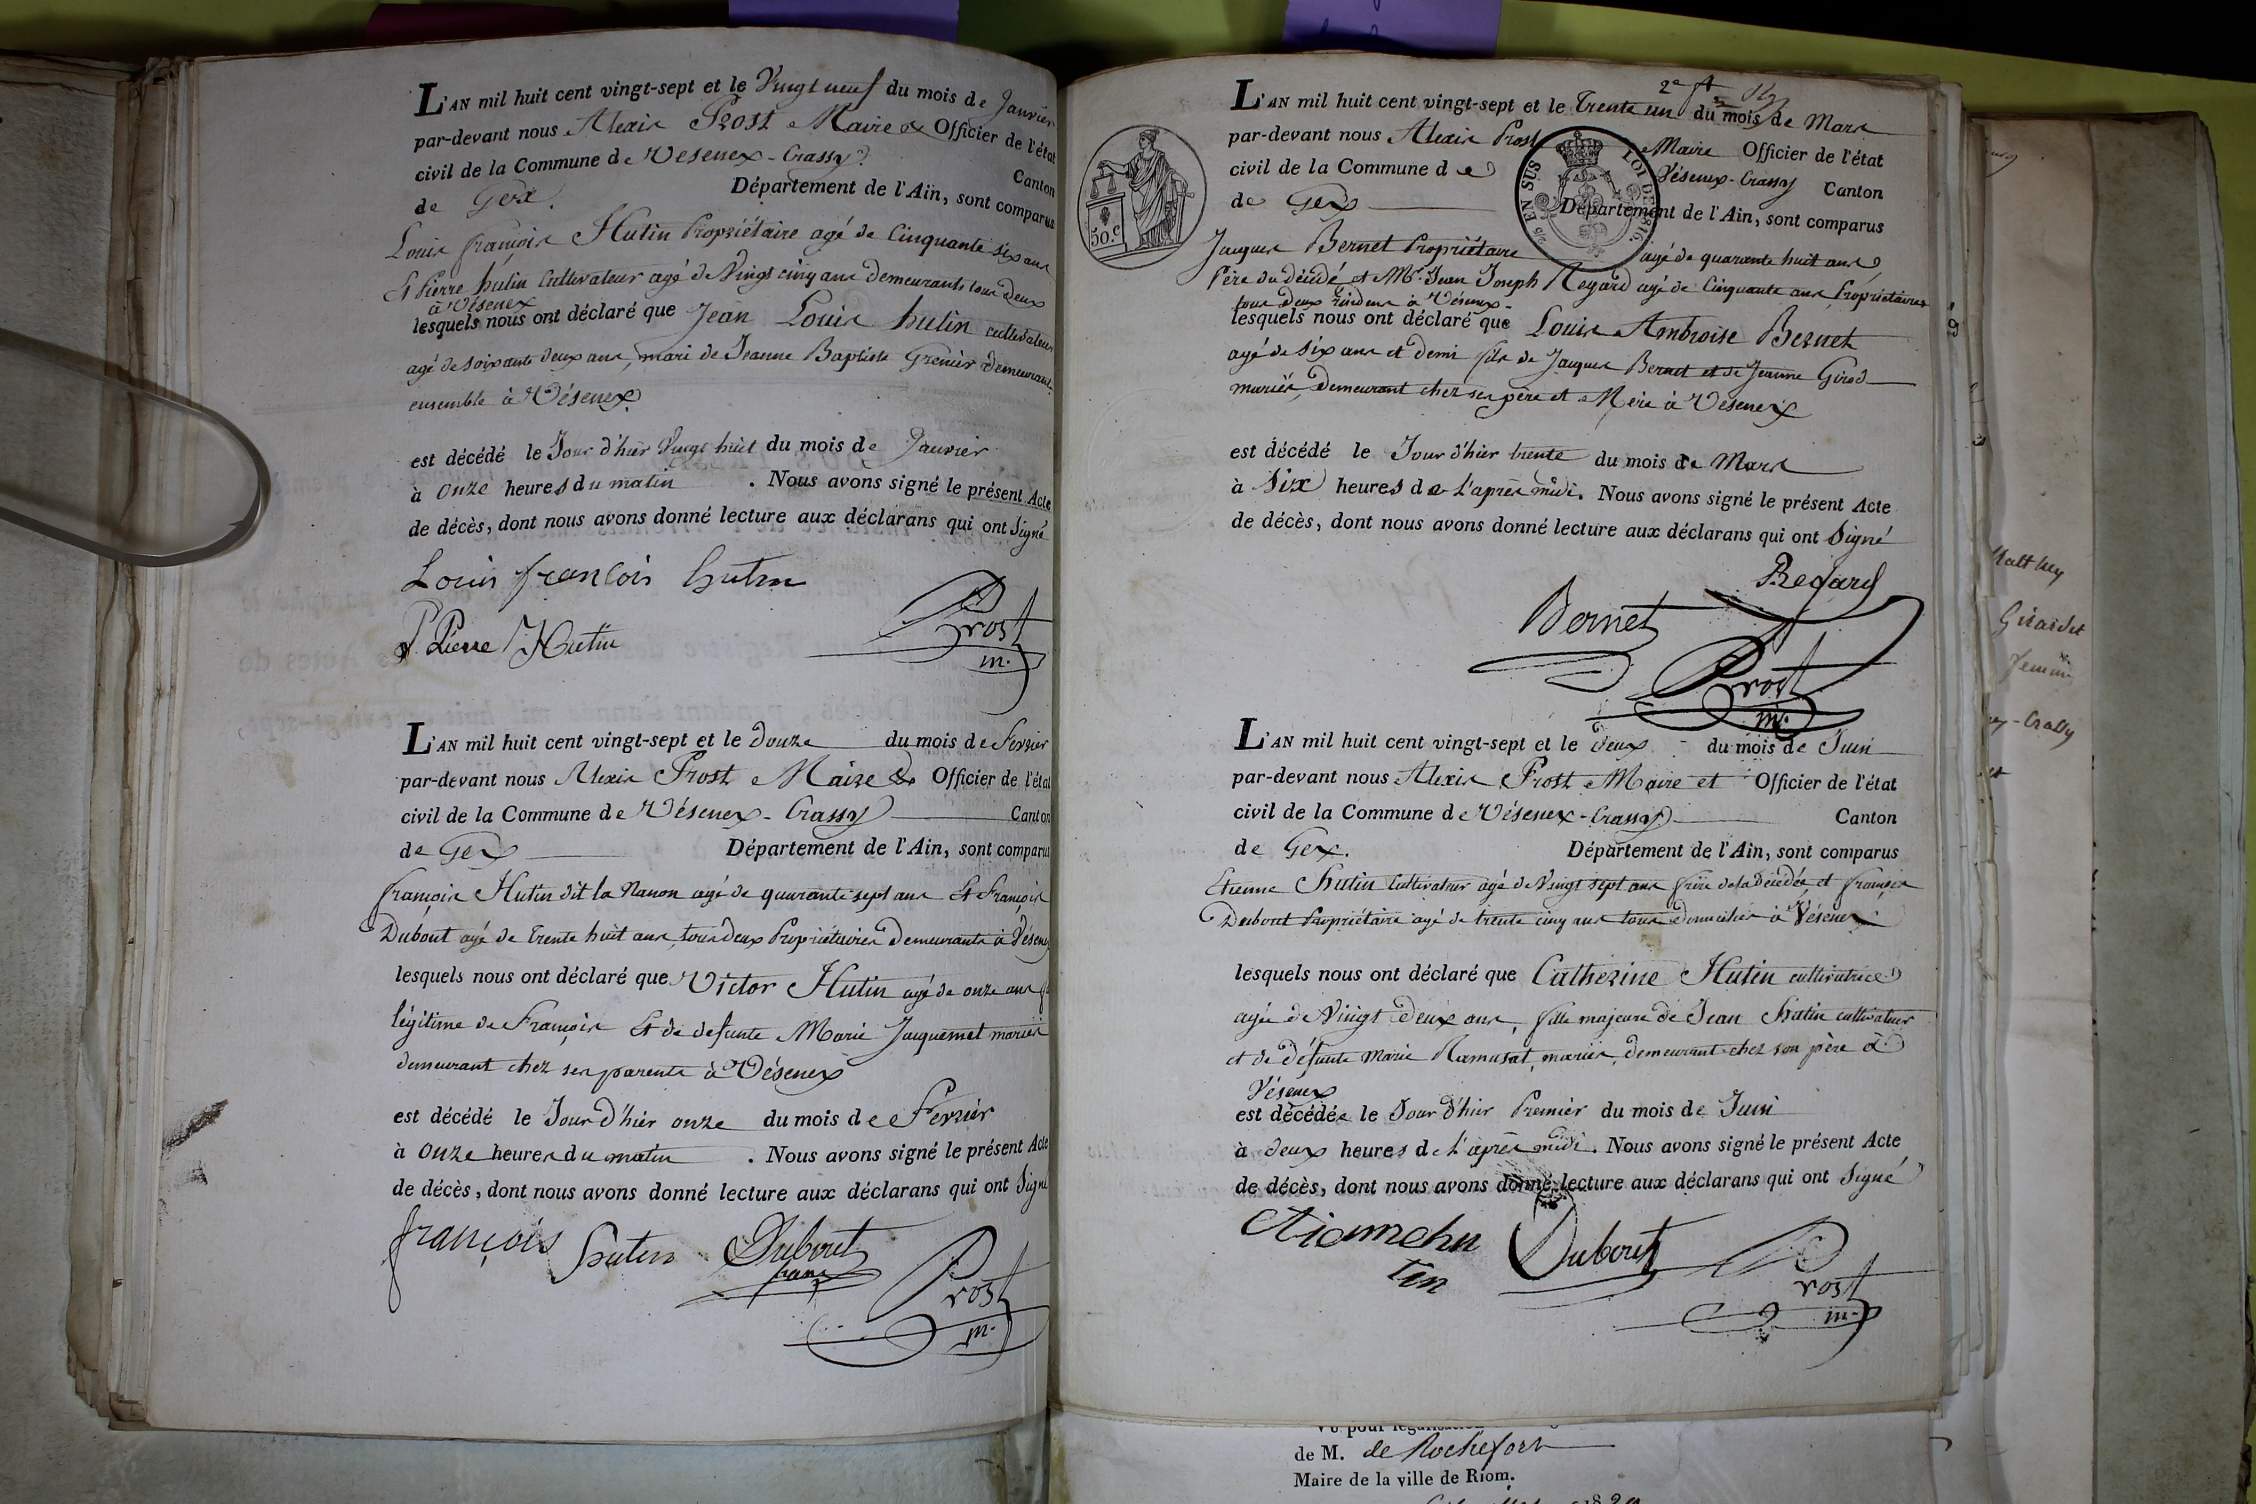 L'AN mil huit cent vingt-sept et le Vingt neuf du mois de Janvier
par-devant nous Alexis Prost Maire & Officier de l'état
civil de la Commune de Vesenex-Crassy.
Canton
de Gex. Département de l'Ain, sont comparus
Louis françois Hutin Propriétaire agé de Cinquante six ans
Et Pierre hutin Cultivateur agé de Vingt cinq ans demeurants tous deux
à Vésenex
lesquels nous ont déclaré que Jean Louis hutin cultivateur
agé de soixante deux ans, mari de Jeanne Baptiste Grenier demeurant
ensemble à Vésenex
est décédé le Jour d'hier Vingt huit du mois de Janvier
à onze heures du matin . Nous avons signé le présent Acte
de décès, dont nous avons donné lecture aux déclarans qui ont Signé
Louis françois hutin
Pierre Hutin
Prost
m.
L'AN mil huit cent vingt-sept et le douze du mois de Fevrier
par-devant nous Alexis Prost Maire & Officier de l'état
civil de la Commune de Vésenex-Crassy Canton
de Gex Département de l'Ain, sont comparus
françois Hutin dit la Nanon agé de quarante sept ans Et François
Dubout agé de Trente huit ans, tous deux Propriétaires Demeurants à Vésenex
lesquels nous ont déclaré que Victor Hutin agé de onze ans
légitime de François Et de defunte Marie Jacquemet mariés
demeurant chez ses parents à Vésenex
est décédé le Jour d'hier onze du mois de Fevrier
à onze heures du matin . Nous avons signé le présent Acte
de décès, dont nous avons donné lecture aux déclarans qui ont Signé
françois hutin Dubout
franç
Prost
m.
2e
L'AN mil huit cent vingt-sept et le Trente un du mois de Mars
par-devant nous Alexis Prost Maire Officier de l'état
civil de la Commune de Vésenex-Crassy Canton
de Gex Département de l'Ain, sont comparus
50.c
EN SUS LOI DE 1816.
Jacques Bernet Propriétaire agé de quarante huit ans
Père du décédé et Mr. Jean Joseph Regard agé de Cinquante ans Propriétaires
tous deux résidens à Vésenex
lesquels nous ont déclaré que Louis Ambroise Bernet
agé de six ans et demi fils de Jacques Bernet et de Jeanne Girod
mariés, Demeurant chez ses père et Mère à Vesenex
est décédé le Jour d'hier trente du mois de Mars
à Six heures de l'après midi. Nous avons signé le présent Acte
de décès, dont nous avons donné lecture aux déclarans qui ont Signé
Regard
Bernet
Prost
m.
L'AN mil huit cent vingt-sept et le deux du mois de Juin
par-devant nous Alexis Prost Maire et Officier de l'état
civil de la Commune de Vésenex-Crassy Canton
de Gex. Département de l'Ain, sont comparus
Etienne hutin Cultivateur agé de Vingt sept ans frère de la décédée et françois
Dubout Propriétaire agé de trente cinq ans tous domiciliés à Vésenex
lesquels nous ont déclaré que Catherine Hutin cultivatrice
agée de Vingt deux ans, fille majeure de Jean hutin cultivateur
et de défunte Marie Ramusat, mariés, demeurant chez son père à
Vésenex
est décédée le Jour d'hier Premier du mois de Juin
à deux heures de l'après midi. Nous avons signé le présent Acte
de décès, dont nous avons donné lecture aux déclarans qui ont Signé
Dubout
tin
Prost
m.
Girardet
de M. de Rochefort
Maire de la ville de Riom.